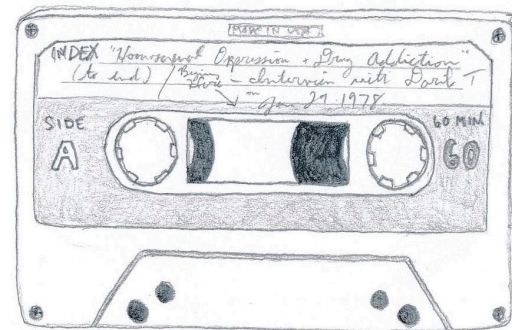 MADE IN USA
INDEX "Homosexual Opression + Drug Addiction"
(to end) / Begin Here - Interview with David T
on Jan 29 1978
SIDE
A
60 MIN
60